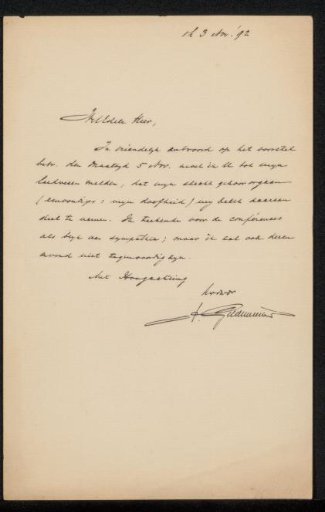 3 Nov. '92
WelEdele Heer,
In vriendelijk antwoord op het voorstel
betr. den Maaltijd 5 Nov. moet ik U tot mijn
leedwezen melden, dat mijn slecht gehoororgaan
(eenvoudiger: mijn doofheid) mij belet daaraan
deel te nemen. Ik teekende voor de conférences
als bijv. van sympathie; maar ik zal ook dezen
avond niet tegenwoordig zijn.
Met Hoogachting